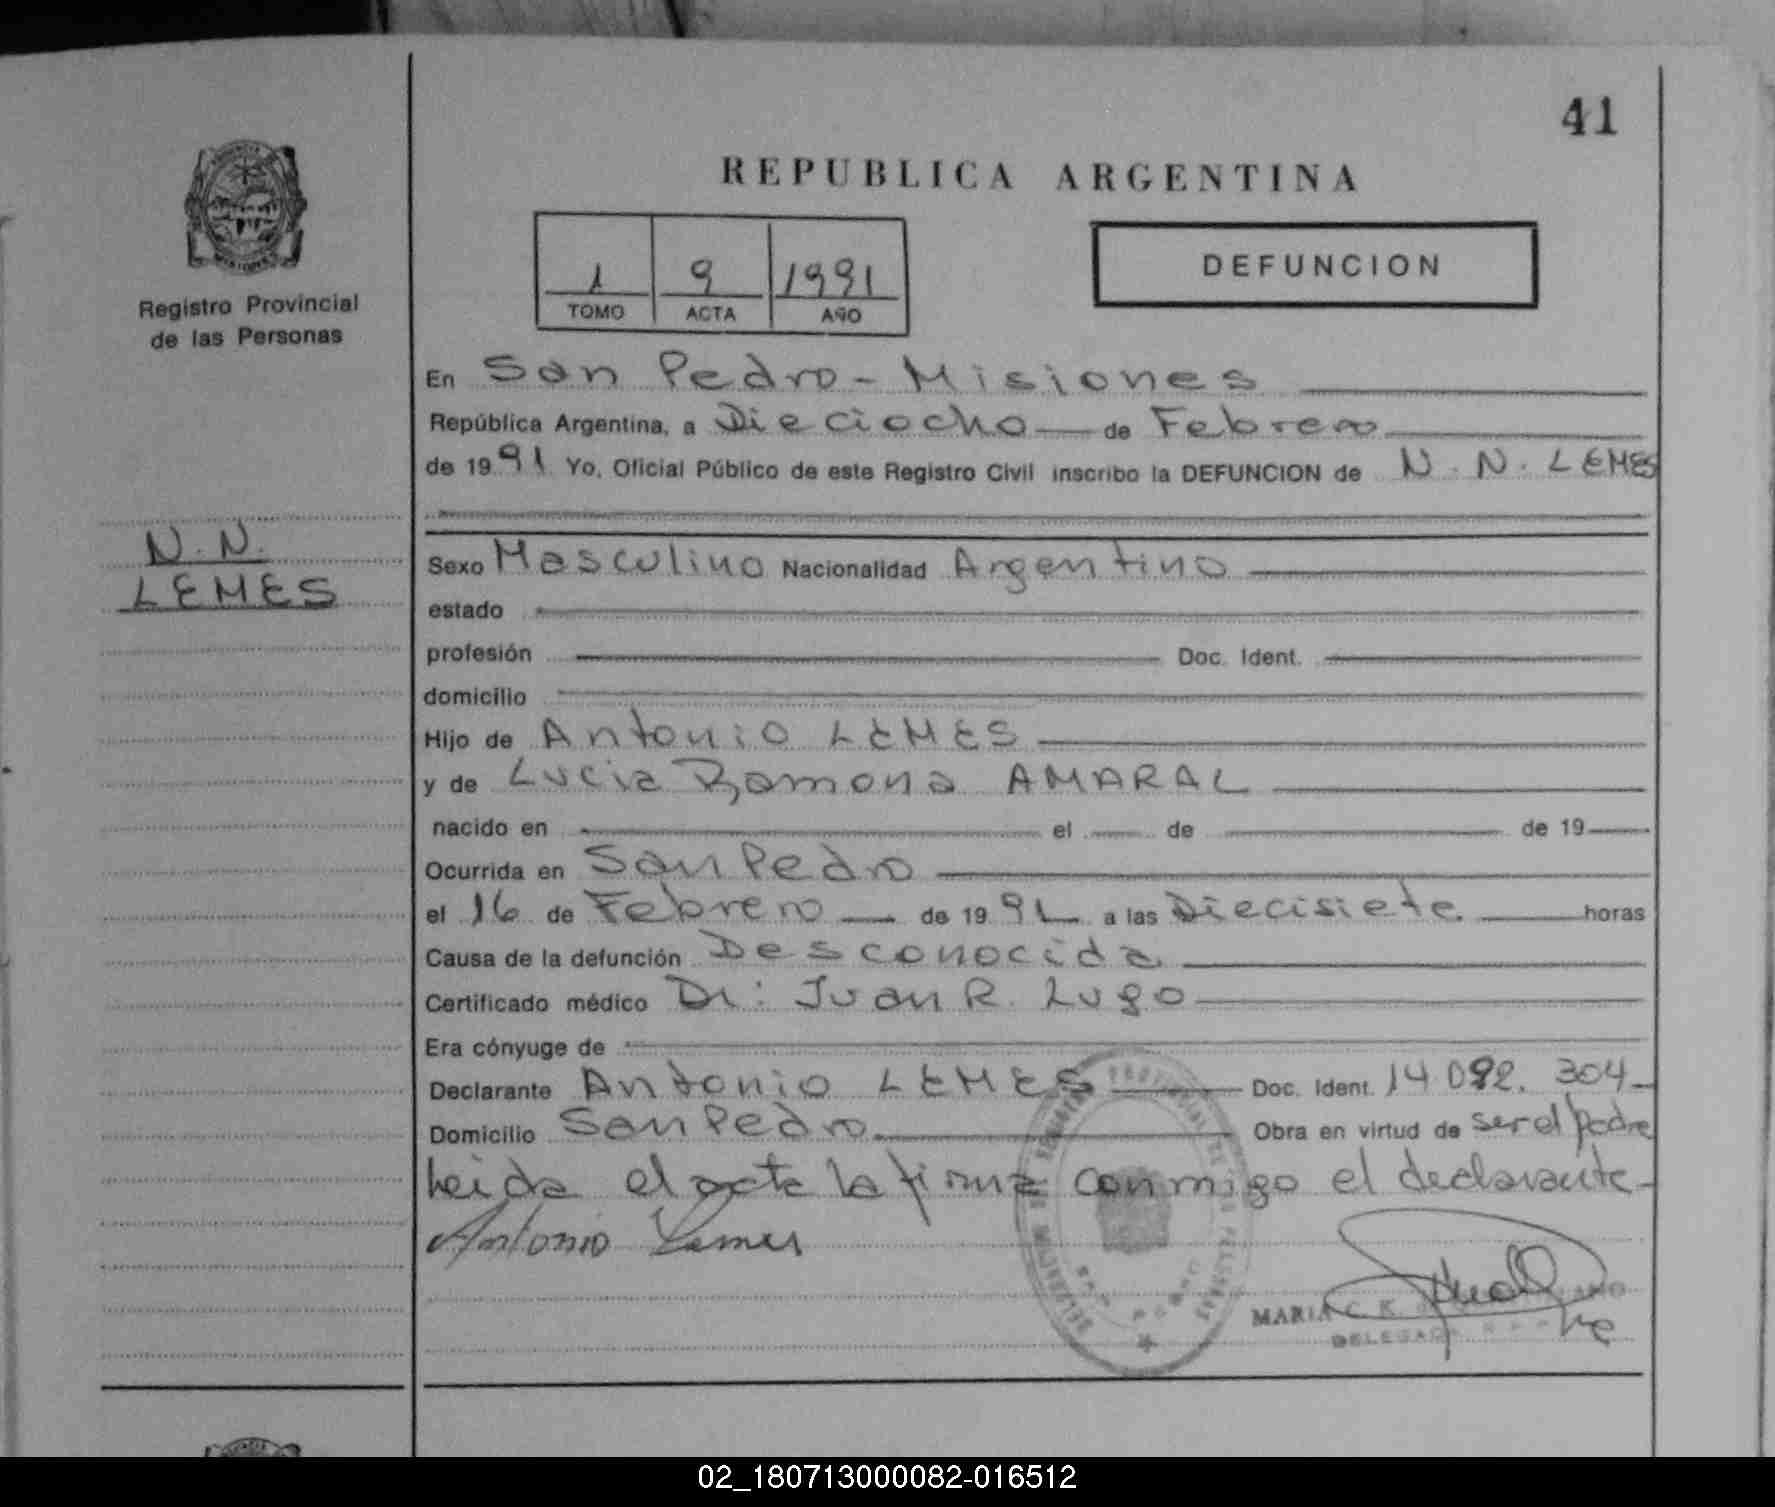 41
REPUBLICA ARGENTINA
Registro Provincial
de las Personas
1 9 1991
TOMO ACTA AÑO
DEFUNCION
En San Pedro - Misiones
República Argentina, a Dieciocho de Febrero
de 1991 Yo, Oficial Público de este Registro Civil inscribo la DEFUNCION de N. N. LEMES
N. N.
LEMES
Sexo Masculino Nacionalidad Argentino
estado
profesión Doc. Ident.
domicilio
Hijo de Antonio LEMES
y de Lucia Ramona AMARAL
nacido en el de de 19
Ocurrida en San Pedro
el 16 de Febrero de 1991 a las Diecisiete horas
Causa de la defunción Desconocida
Certificado médico Dr: Juan R. Lugo
Era cónyuge de
Declarante Antonio LEMES Doc. Ident. 14.092.304
Domicilio San Pedro Obra en virtud de ser el padre
Leida el acta la firma conmigo el declarante
Antonio Lemes
MARIA C. K.
DELEGADA
SAN PEDRO
02_180713000082-016512